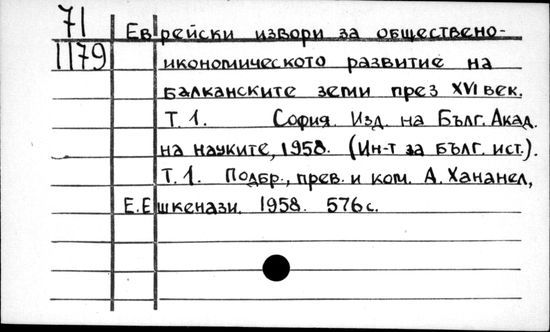 71 Еврейски извори за обществено-
1179 икономическото развитие на
балканските земи през XVI век.
Т. 1. София. Изд. на Бълг. Акад.
на науките, 1958. (Ин-т за бълг. ист.).
Т. 1. Подбр., прев. и ком. А. Хананел,
Е. Ешкенази. 1958. 576 с.